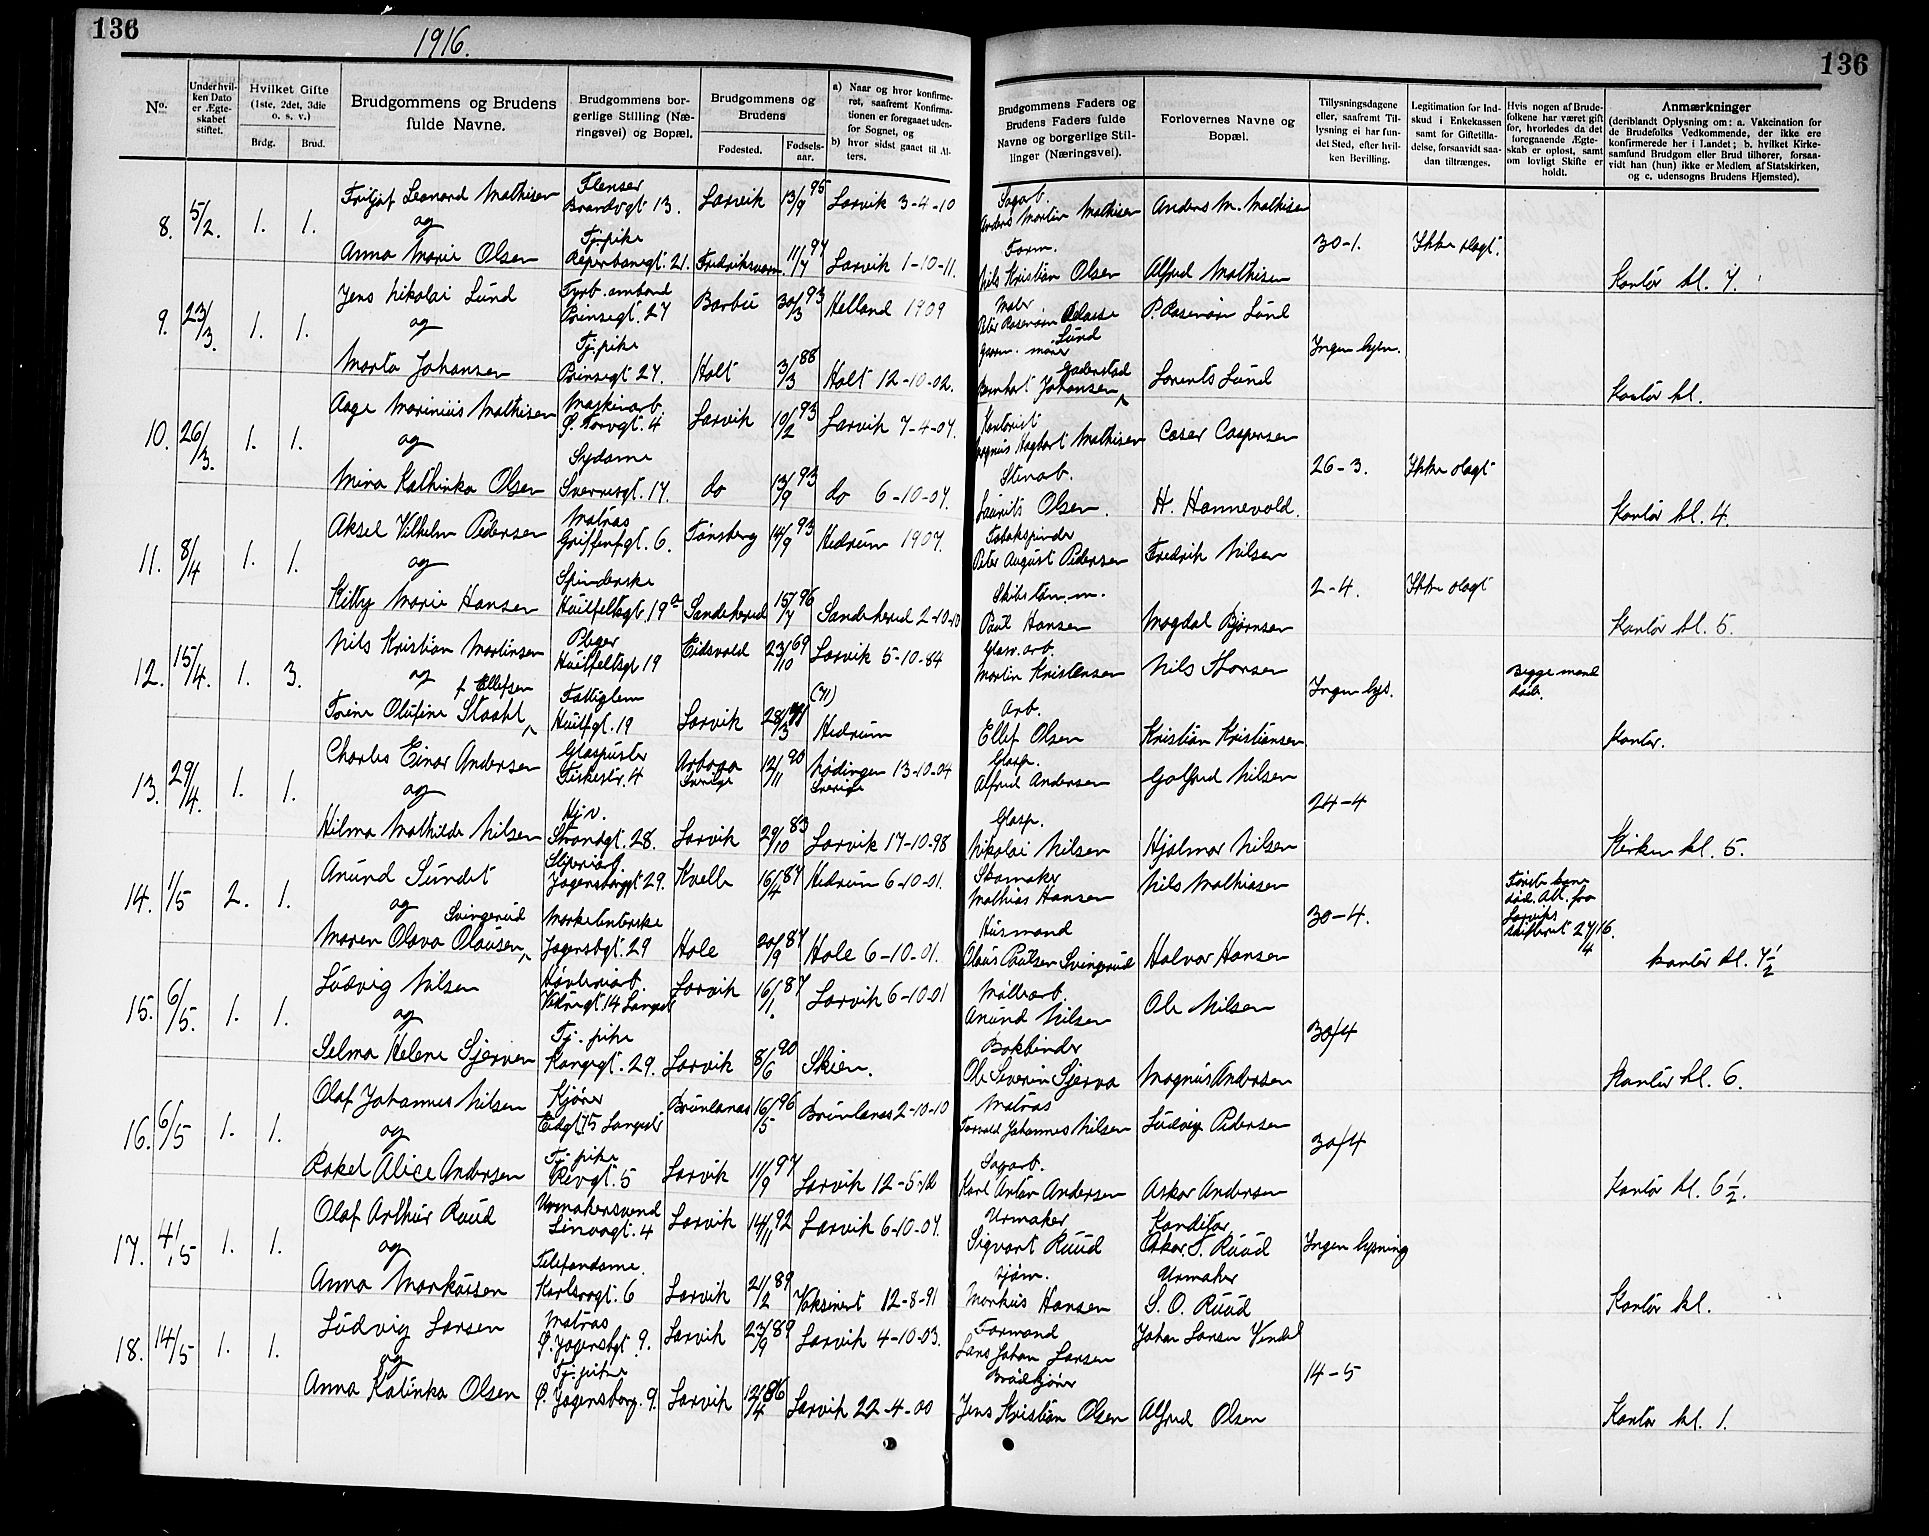 136
1916.
136
No.
Under hvilken Dato er Ægteskabet stiftet.
Hvilket Gifte (1ste, 2det, 3die o. s. v.)
Brdg.
Brud.
Brudgommens og Brudens fulde Navne.
Brudgommens borgerlige Stilling (Næringsvei) og Bopæl.
Brudgommens og Brudens
Fødested.
Fødselsaar.
a) Naar og hvor konfirmeret, saafremt Konfirmationen er foregaaet udenfor Sognet, og
b) hvor sidst gaaet til Alters.
Brudgommens Faders og Brudens Faders fulde Navne og borgerlige Stillinger (Næringsvei).
Forlovernes Navne og Bopæl.
Tillysningsdagene eller, saafremt Tillysning ei har fundet Sted, efter hvilken Bevilling.
Legitimation for Indskud i Enkekassen samt for Giftetilladelse, forsaavidt saadan tiltrænges.
Hvis nogen af Brudefolkene har været gift før, hvorledes da det foregaaende Ægteskab er opløst, samt om lovligt Skifte er holdt.
Anmærkninger
(deriblandt Oplysning om: a. Vakcination for de Brudefolks Vedkommende, der ikke ere konfirmerede her i Landet; b. hvilket Kirkesamfund Brudgom eller Brud tilhører, forsaavidt han (hun) ikke er Medlem af Statskirken, og c. udensogns Brudens Hjemsted).
8. 5/2. 1. 1. Fritjof Leonard Mathisen Flenser Brandvgt 13. Larvik 13/9 95 Larvik 3-4-10 Sagarb. Anders Martin Mathisen Anders M. Mathisen
og 30-1. Ikke olagt.
Anna Marie Olsen Tj.pike Reperbanegt. 21. Fredriksværn 11/7 97 Larvik 1-10-11. Form. Nils Kristian Olsen Alfred Mathisen Kontor kl. 7.
9. 23/3. 1. 1. Jens Nikolai Lund Fyrb. ombord Prinsegt. 27 Barbu 30/3 93 Helland 1909 Maler Lund P. Rosenørn Lund
og Ingen lysn.
Marta Johansen Tj.pike Prinsegt 27. Holt 3/3 88 Holt 12-10-02. Bernhart Johansen Lorents Lund Kontor kl.
10. 26/3. 1. 1. Aage Marinius Mathisen Maskinarb. Ø. Torvgt. 4 Larvik 19/2 93 Larvik 7-4-07. Kontorist Magnus Hagbart Mathisen Cæsar Caspersen
og 26-3. Ikke olagt
Mina Kathinka Olsen Sydame Sverresgt. 17. do 13/9 93 do 6-10-07. Stenarb. Laurits Olsen. H. Hannevold. Kontor kl. 4.
11. 8/4 1. 1. Aksel Vilhelm Pedersen Matros Griffenfgt. 6. Tønsberg 14/9 93 Hedrum 1907. Tobakspinder Peter August Pedersen Fredrik Nilsen
og 2-4. Ikke olagt
Kitty Marie Hansen Spinderske Huitfeltsgt. 19a Sandeherred 15/7 96 Sandeherred 2-10-10 Skibstøm.m. Paul Hansen Magdal Bjørnsen Kontor kl. 5.
12. 15/4. 1. 3. Nils Kristian Martinsen Pleger Huitfeltsgt 19 Eidsvold 23/10 69 Larvik 5-10-84 Glasv.arb. Martin Kristensen Nils Thorsen
og f. Ellefsen Ingen lys. Begge mænd døde.
Torine Olufine Staahl Fattiglem Huitfgt. 19 Larvik 28/3 71 (71) Hedrum Arb. Ellef Olsen Kristian Kristiansen Kontor.
13. 29/4. 1. 1. Charles Einar Andersen Glaspuster Fiskestr. 4 Arboga Sverige 12/11 90 Nødingen 13-10-04 Sverige Glasp. Alfred Andersen Gotfred Nilsen
og 24-4
Hilma Mathilde Nilsen Hj.v. Strandgt. 28. Larvik 29/10 83 Larvik 17-10-98 Glasp. Nikolai Nilsen Hjalmar Nilsen Kirken kl. 5.
14. 1/5 2. 1. Anund Sundet Sliperiarb. Jegersborggt 29. Kvelle 16/4 87 Hedrum 6-10-01. Skomaker Mathias Hansen Nils Mathiasen
og Svingerud 30-4. Første kone død. Att. fra Larviks skifterett 27/4 16.
Maren Olava Olausen Marketenterske Jegersbgt. 29 Hole 20/9 87 Hole 6-10-01. Husmand Olaus Paulsen Svingerud Halvor Hansen Kontor kl. 7½
15. 6/5. 1. 1. Ludvig Nilsen Høvleriarb. Larvik 16/1. 87 Larvik 6-10-01 Møllearb. Anund Nilsen Ole Nilsen
og 30/4
Selma Helene Sjerven Tj.-pike Kongegt. 29. Larvik 8/6 90 Skien. Bokbinder Ole Severin Sjerva Magnus Andersen Kontor kl. 6.
16. 6/5 1. 1. Olaf Johannes Nilsen Kjører Brunlanes 16/5 96 Brunlanes 2-10-10 Matros Johannes Nilsen Ludvig Pedersen
og 30/4
Rakel Alice Andersen Tj.pike Revgt. 5 Larvik 11/9 97 Larvik 12-5-12 Sagarb. Karl Anton Andersen Oskar Andersen Kontor kl. 6½.
17. 1. 1. Olaf Arthur Ruud Urmakersvend Linvagt. 4 Larvik 14/11 92 Larvik 6-10-07. Urmaker Sigvart Ruud Konditor Oskar S. Ruud
og Ingen lysning
Anna Markusen Telefondame. Karlsrogt. 6 Larvik 21/2 89 Vaksinert 12-8-91 Sjøm. Markus Hansen Urmaker S. O. Ruud Kontor kl.
18. 14/5 1. 1. Ludvig Larsen Matros Ø. Jegersbgt 9. Larvik 23/9 89 Larvik 4-10-03. Formand Lars Johan Larsen Johan Larsen Vendel
og 14-5
Anna Katinka Olsen Tj.pike Ø. Jegersborg. 9. Larvik 12/4 86 Larvik 22-4-00 Brødkjører Jens Kristian Olsen Alfred Olsen Kontor kl. 1.